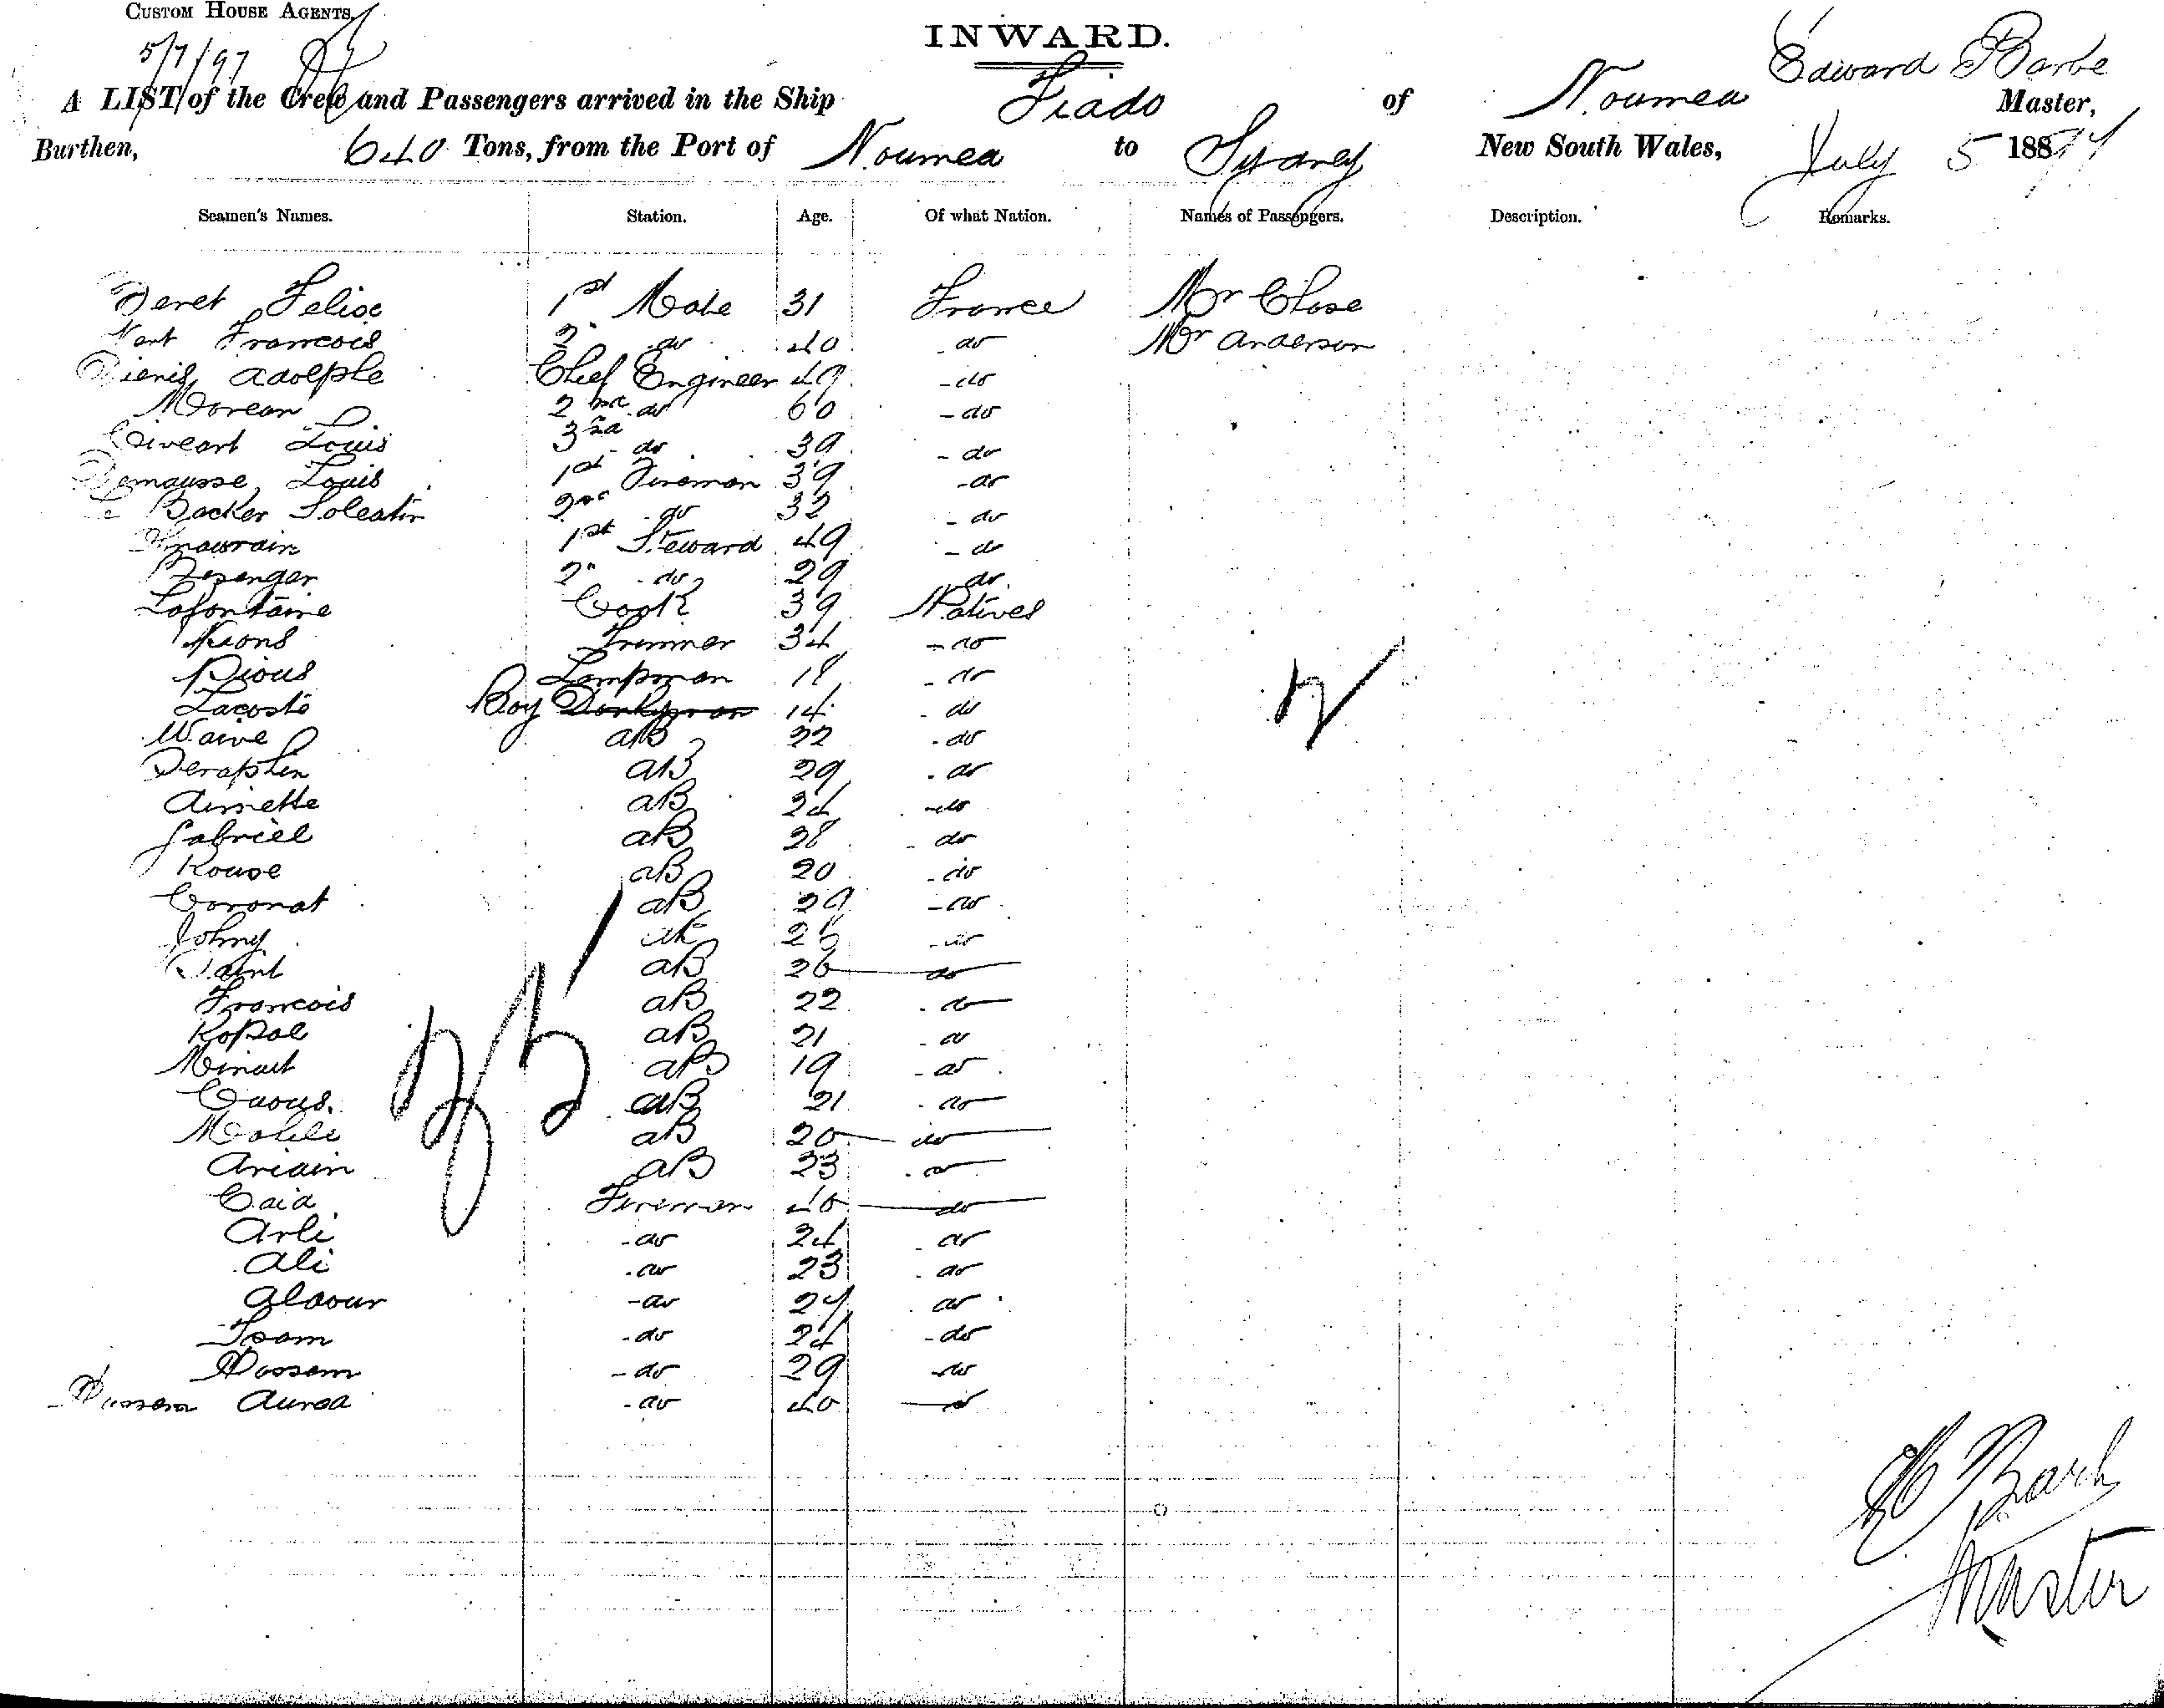 CUSTOM HOUSE AGENTS,
5/7/97
INWARD.
A LIST of the Crew and Passengers arrived in the Ship Fiado of Noumea Edward Barbe Master,
Burthen, 640 Tons, from the Port of Noumea to Sydney New South Wales, July 5 1897
Seamen's Names. Station. Age. Of what Nation. Names of Passengers. Description. Remarks.
Deret Felise 1st Mate 31 France Mr Close
Francois 2 do 40 do Mr Anderson
Adolphe Chief Engineer 49 do
Morean D. 2nd do 60 do
Louis 3rd do 39 do
Demausse Louis 1st Fireman 39 do
Backer 2nd do 32 do
1st Steward 49 do
Besenger 2nd do 29 do
Lafontaine Cook 39 Natives
Trimmer 34 do
Pious Lampman 18 do
Lacoste Boy Donkeyman 14 do
Waive AB 22 do
Seraphin AB 29 do
Aimette AB 24 do
Gabriel AB 28 do
Kouse AB 20 do
Coronat AB 29 do
Johny AB 25 do
Saint AB 26 do
Francois AB 22 do
Kopoe AB 21 do
Minait AB 19 do
AB 21 do
AB 20 do
Ariain AB 23 do
Caia Fireman 40 do
Arli do 24 do
Ali do 23 do
Glaour do 27 do
do 24 do
Hossem do 29 do
Hussem do 40 do
35
2
E Barbe
Master